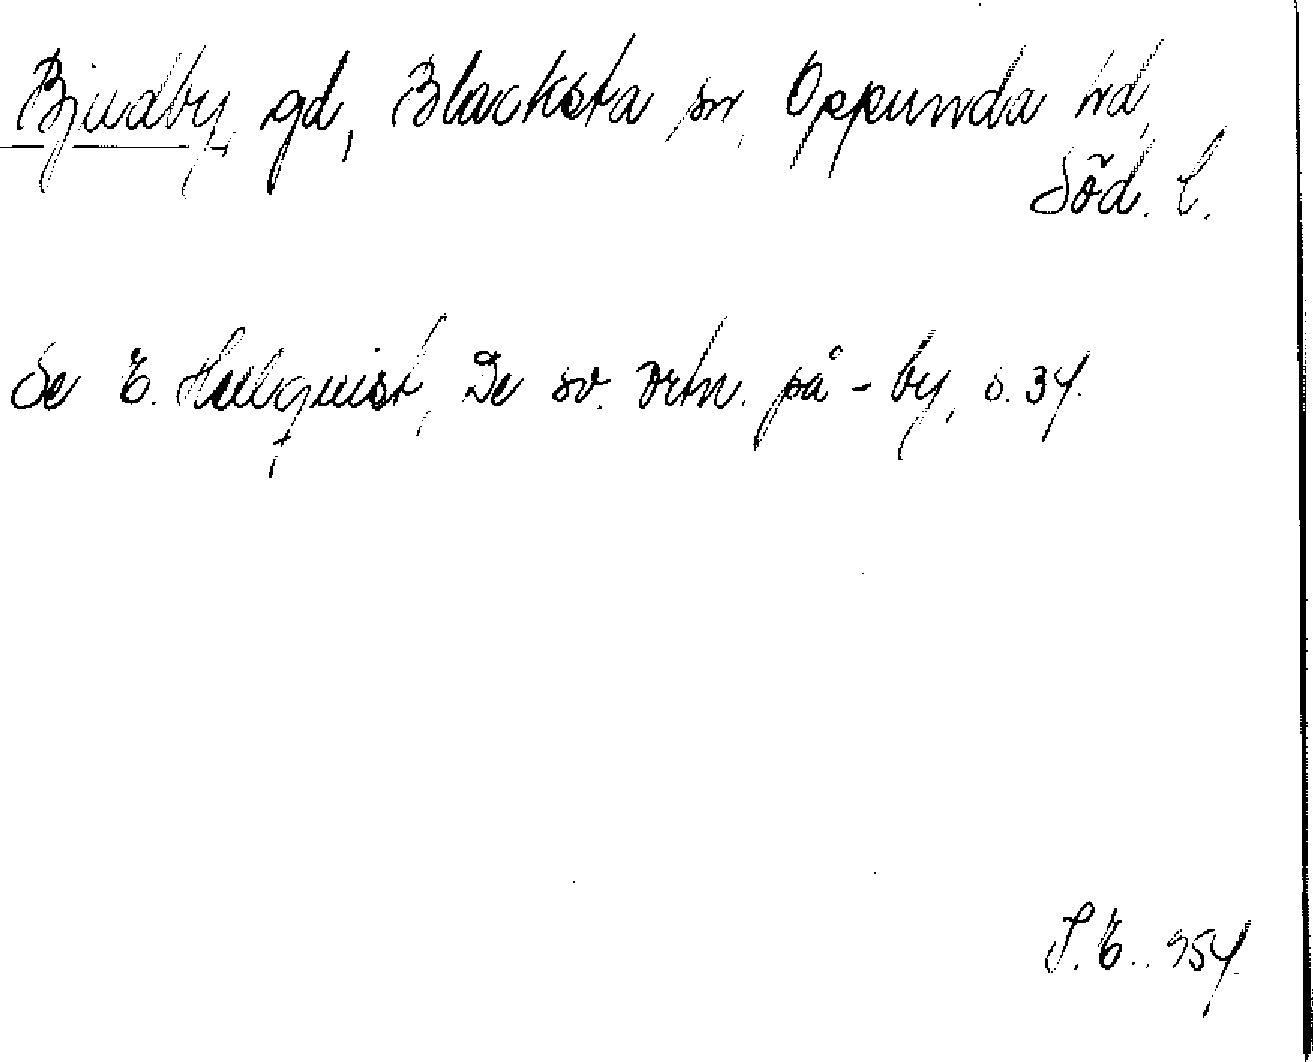 Bjudby, gd, Blacksta sn, Oppunda hd,
Söd. l.
Se E. Hellquist, De sv. ortn. på -by, s. 34.
S. E. 954